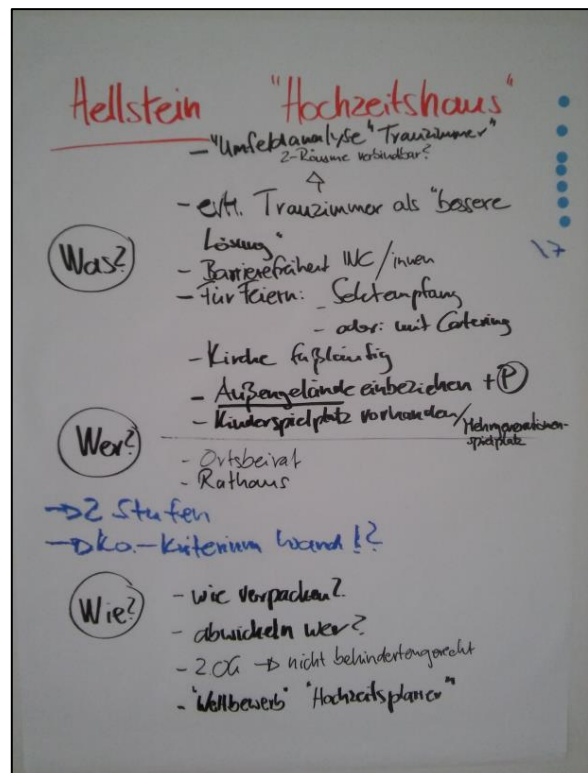 Hellstein "Hochzeitshaus"
- "Umfeldanalyse" Trauzimmer"
2-Räume verbindbar?
- evtl. Trauzimmer als "bessere
Lösung"
Was?
- Barrierefreiheit WC/innen
- Für Feiern: - Sektempfang
- oder: mit Catering
- Kirche fußläufig
- Außengelände einbeziehen + P
- Kinderspielplatz vorhanden/Mehrgenerationen-
spielplatz
Wer?
- Ortsbeirat
- Rathaus
→ 2 Stufen
→ K.o.-Kriterium Wand!?
Wie?
- wie verpacken?
- abwickeln wer?
- 2.OG → nicht behindertengerecht
- "Wettbewerb" "Hochzeitsplaner"